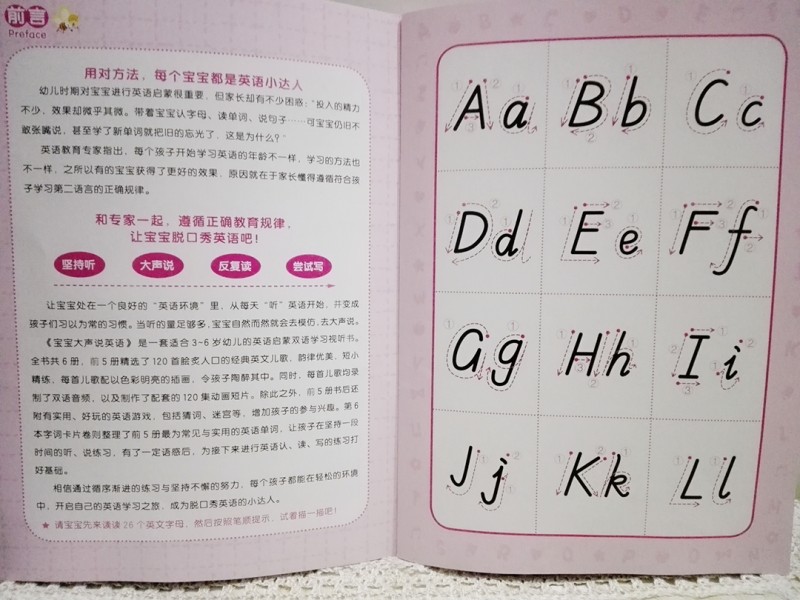 前言
Preface
用对方法，每个宝宝都是英语小达人
幼儿时期对宝宝进行英语启蒙很重要，但家长却有不少困惑："投入的精力
不少，效果却微乎其微。带着宝宝认字母、读单词、说句子……可宝宝仍旧不
敢张嘴说，甚至学了新单词就把旧的忘光了，这是为什么？"
英语教育专家指出，每个孩子开始学习英语的年龄不一样，学习的方法也
不一样，之所以有的宝宝获得了更好的效果，原因就在于家长懂得遵循符合孩
子学习第二语言的正确规律。
和专家一起，遵循正确教育规律，
让宝宝脱口秀英语吧！
坚持听 大声说 反复读 尝试写
让宝宝处在一个良好的"英语环境"里，从每天"听"英语开始，并变成
孩子们习以为常的习惯。当听的量足够多，宝宝自然而然就会去模仿，去大声说。
《宝宝大声说英语》是一套适合3~6岁幼儿的英语启蒙双语学习视听书。
全书共6册，前5册精选了120首脍炙人口的经典英文儿歌，韵律优美，短小
精练，每首儿歌配以色彩明亮的插画，令孩子陶醉其中。同时，每首儿歌均录
制了双语音频，以及制作了配套的120集动画短片。除此之外，前5册书后还
附有实用、好玩的英语游戏，包括猜词、迷宫等，增加孩子的参与兴趣。第6
本字词卡片卷则整理了前5册最为常见与实用的英语单词，让孩子在坚持一段
时间的听、说练习，有了一定语感后，为接下来进行英语认、读、写的练习打
好基础。
相信通过循序渐进的练习与坚持不懈的努力，每个孩子都能在轻松的环境
中，开启自己的英语学习之旅，成为脱口秀英语的小达人。
★ 请宝宝先来读读26个英文字母，然后按照笔顺提示，试着描一描吧！
Aa Bb Cc
Dd Ee Ff
Gg Hh Ii
Jj Kk Ll